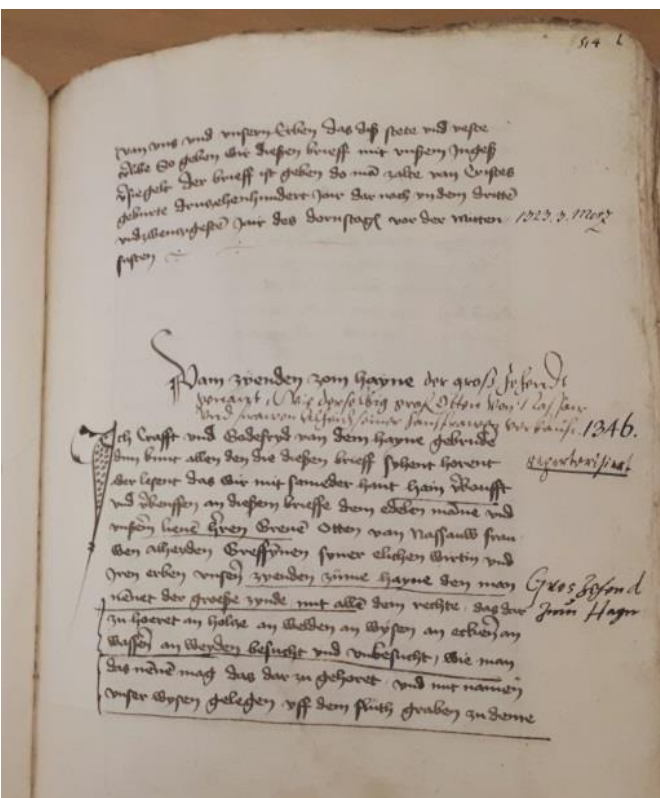 514
van uns und unsern Erben das diß stete und veste
So geben wir dießen brieff mit unßem Ingeß
Der brieff ist geben do man zalte van Cristes
geburte druzehenhundert Jair dar nach yn dem dritten
und zwentzigesten Jair des dornstags vor der mitten 1323. 3. Merz
fasten
Vam zyenden zom hayne der groß Zehendt
genant, Wie derselbig graf Otten von Nassaw
und frawen seiner haußfrawen verkauft. 1346.
Ich Crafft und Godefryd van dem hayne gebrudere
dun kunt allen den die dießen brieff syhent horent
oder leßent das wir mit sameder hant hain verkoufft
und verkouffen an dießem brieffe dem edelen manne und
unserm lieben hern Greven Otten van Nassauw frau
wen Alherden Greffynnen syner elichen wirtin und
Iren erben unsern zyenden zume hayne den man
nennet der große zynde mit allem dem rechte, das dar
Gros Zehend
zu hoeret an holtze an welden an wysen an eckern an
zum Hagn
wassern an weyden besucht und unbesucht, wie man
das nennen mag das dar zu gehoret und mit namen
unser wysen gelegen uff dem fluth graben zu deme